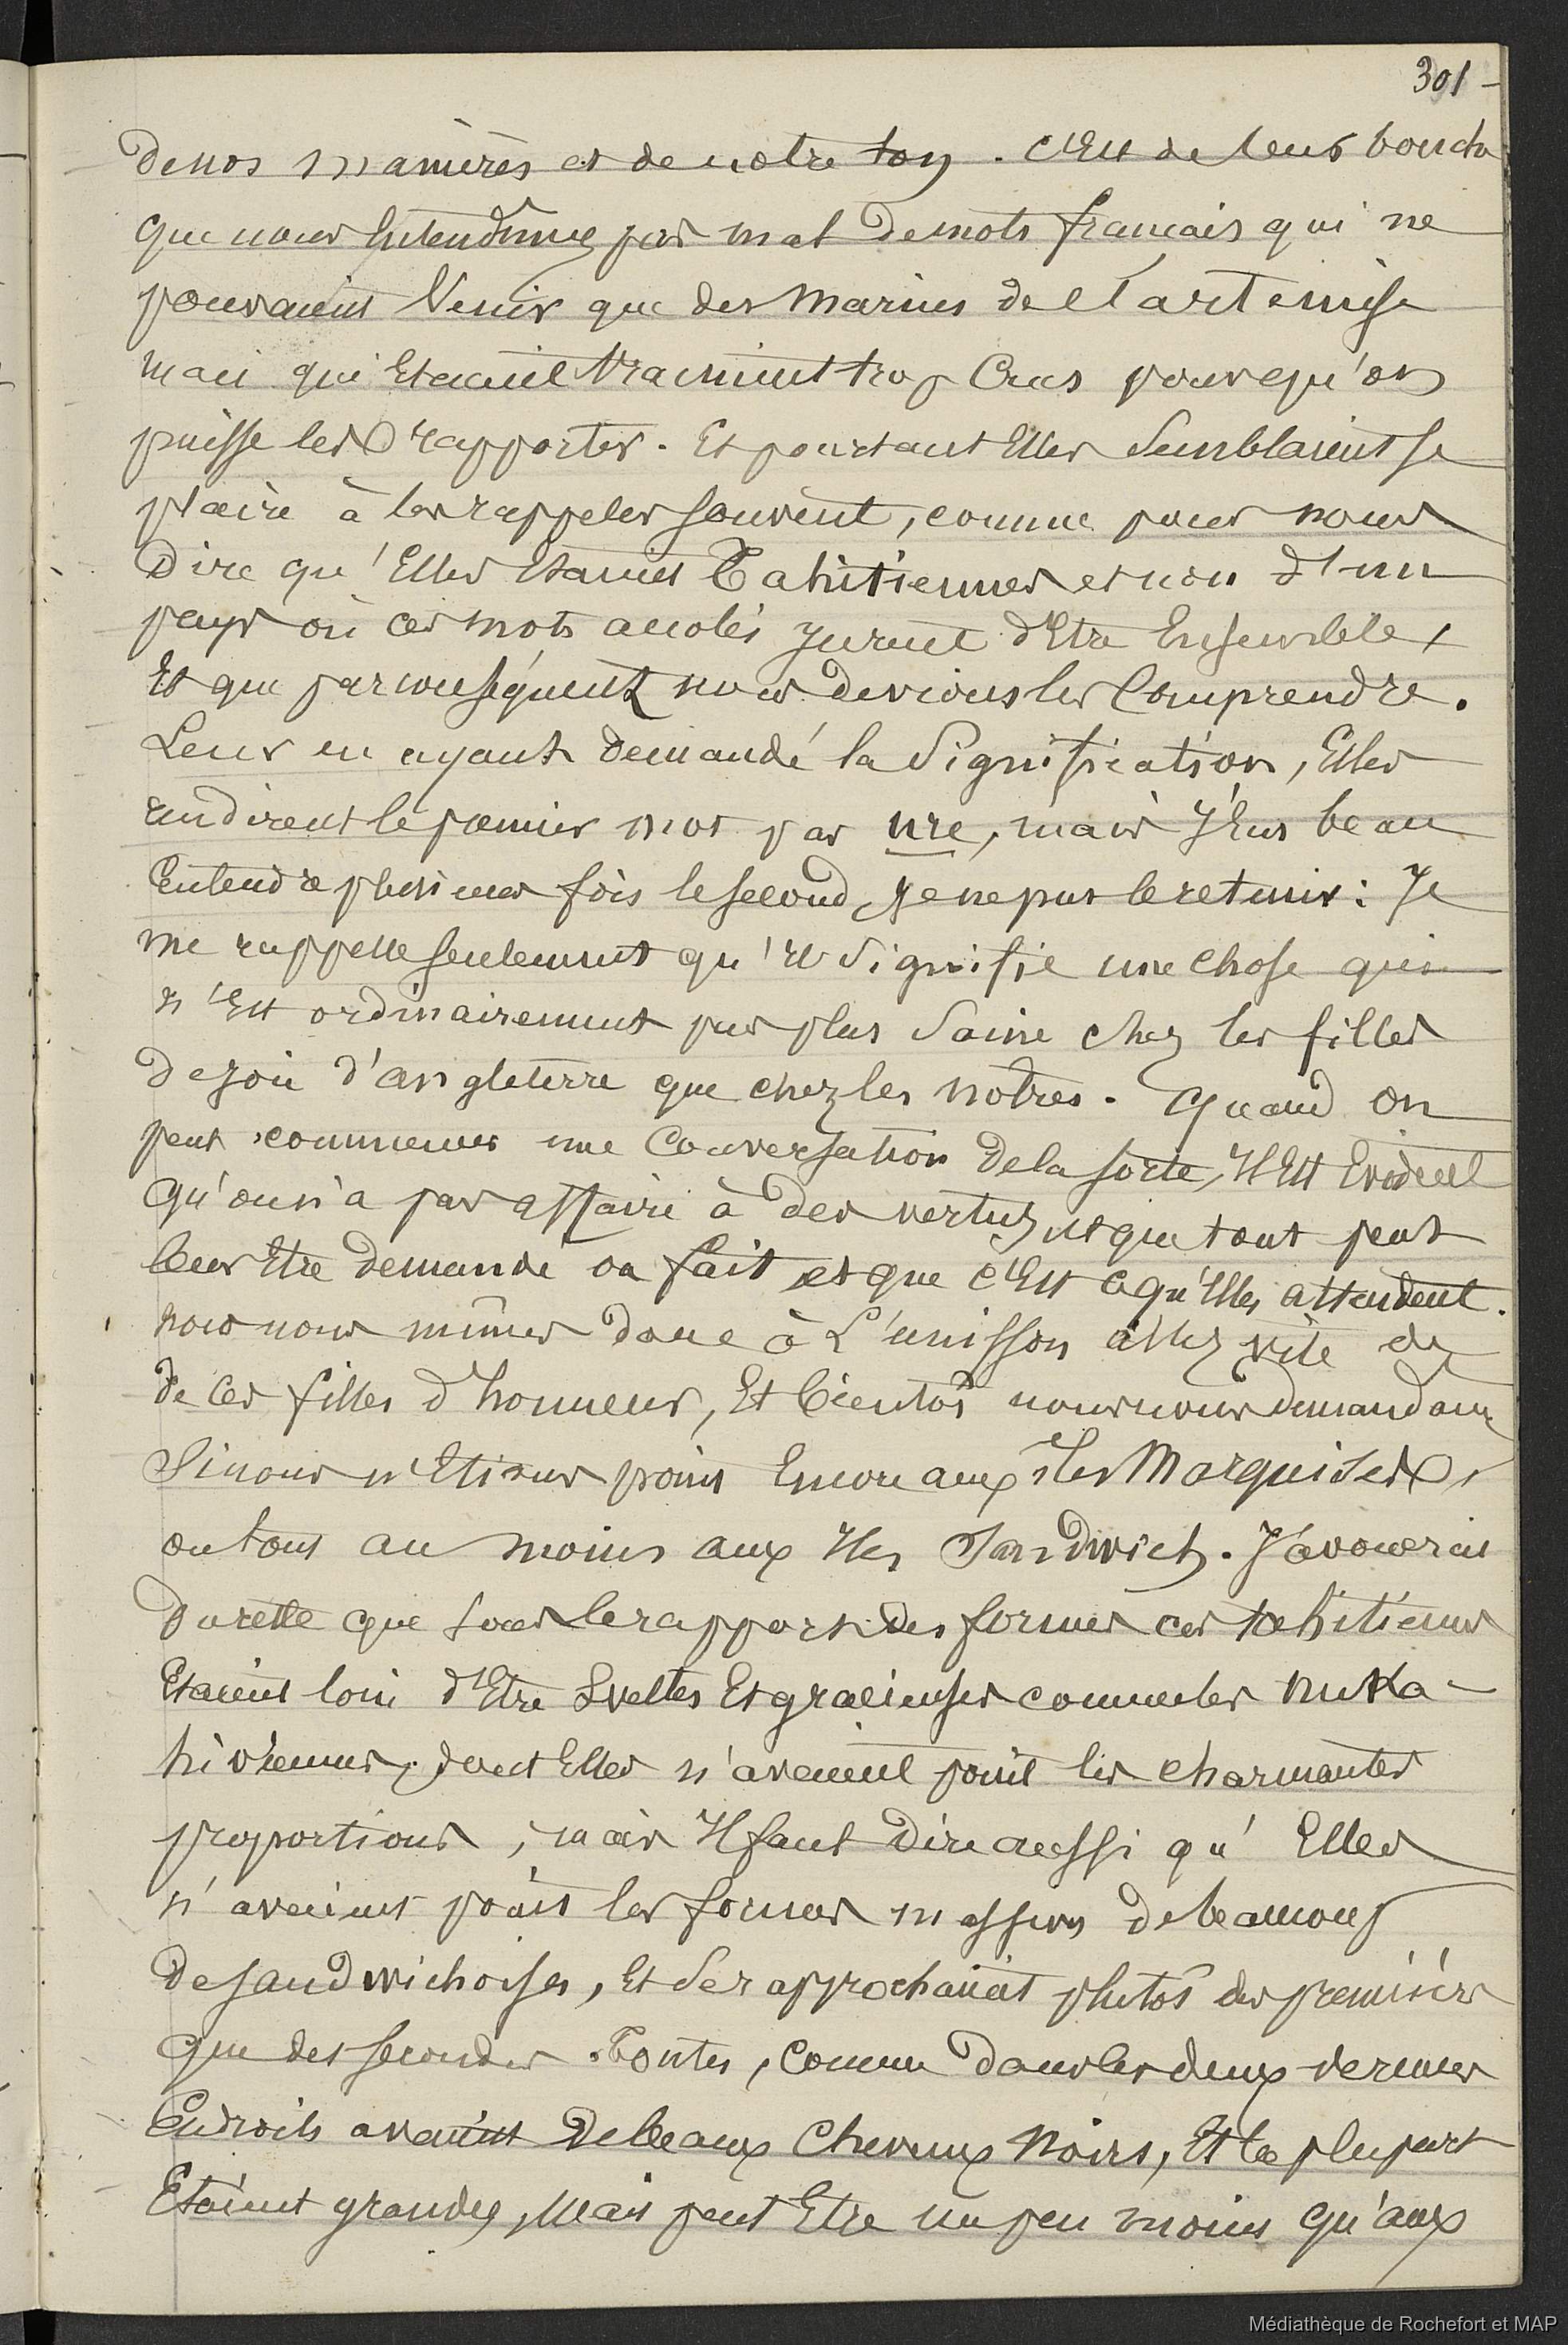 301 -
de nos manières et de notre ton. C'Est de leurs bouche
que nous Entendîmes pas mal de mots francais qui ne
pouvaient Venir que des marins de l'artemise
mais qui Etaient Vraiment trop Crus pour qu'on
puisse les rapporter. Et pourtant Elles Semblaient se
plaire à les rappeler souvent, comme pour nous
Dire qu'Elles Etaient Tahitiennes et non d'un
pays où ces mots accolés jurent d'Etre Ensemble,
Et que par conséquent nous devions les Comprendre.
Leur en ayant demandé la Signification, Elles
rendirent le premier mot par ure, mais j'Eus beau
Entendre plusieurs fois le second, je ne pus le retenir: Je
me rappelle seulement qu'il Signifie une chose qui
n'Est ordinairement pas plus Saine chez les filles
de joie d'angleterre que chez les notres. Quand on
peut commencer une Conversation de la sorte, Il Est Evident
qu'on n'a pas affaire à des vertus, et que tout peut
leur Etre demandé ou fait et que c'Est ce qu'Elles attendent.
nous nous mîmes donc à L'unisson assez vite de
de ces filles d'honneur, Et bientôt nous nous demandames
Si nous n'Etions point Encore aux îles Marquises,
ou tout au moins aux Iles Sandwich. J'avouerai
du reste que sous le rapport des formes ces tahitiennes
Etaient loin d'Etre Sveltes Et gracieuses comme les nuka-
hiviennes, dont Elles n'avaient point les charmantes
proportions, mais Il faut Dire aussi qu'Elles
n'avaient point les formes massives de beaucoup
de sandwichoises, Et Se rapprochaient plutôt des premières
que des secondes. Toutes, Comme dans les deux derniers
Endroits avaient de beaux Cheveux Noirs, Et la plupart
Etaient grandes, Mais peut Etre un peu moins qu'aux
Médiathèque de Rochefort et MAP